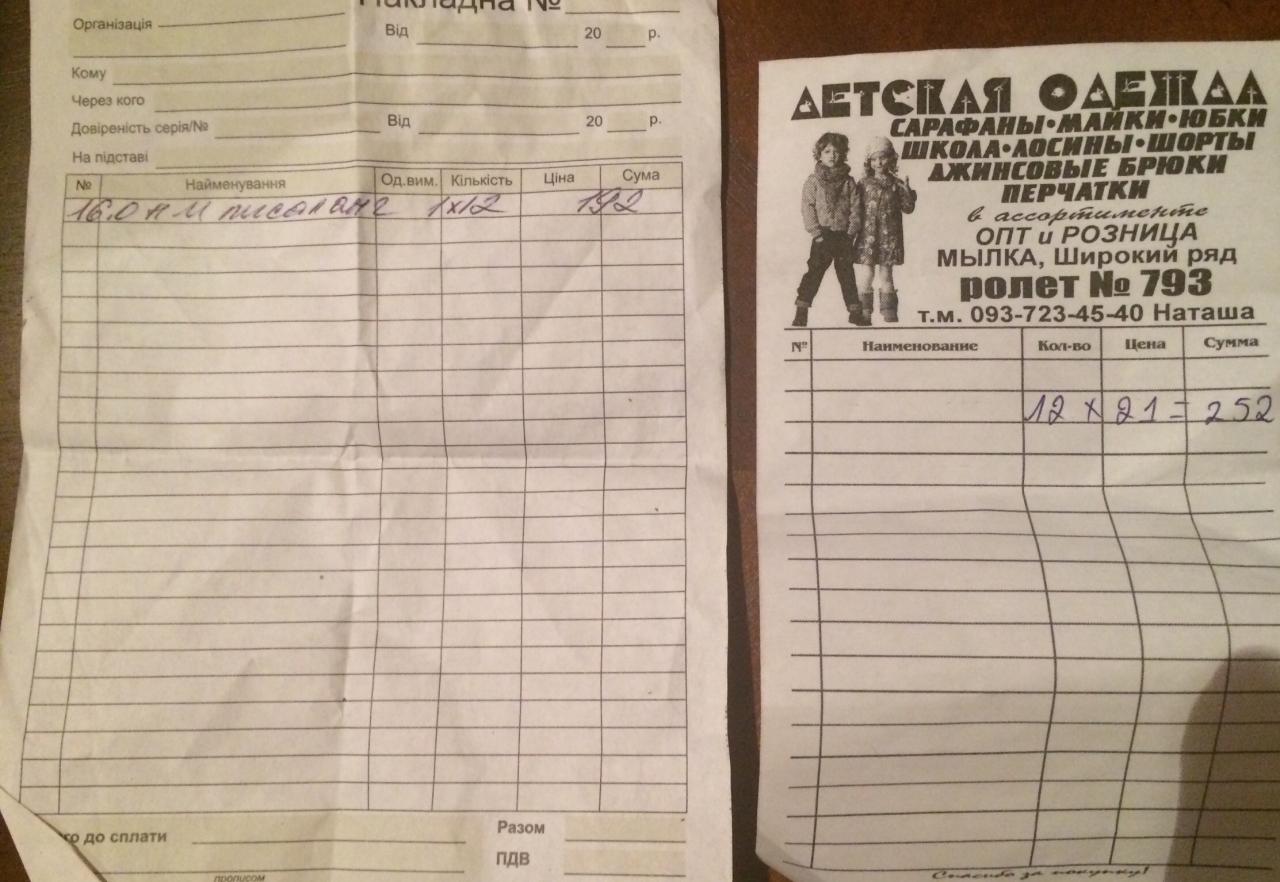 Накладна №
Організація
Від 20 р.
Кому
Через кого
Довіреність серія/№ Від 20 р.
На підставі
№ Найменування Од.вим. Кількість Ціна Сума
1x12 192
до сплати
Разом
ПДВ
прописом
ДЕТСКАЯ ОДЕЖДА
САРАФАНЫ•МАЙКИ•ЮБКИ
ШКОЛА•ЛОСИНЫ•ШОРТЫ
ДЖИНСОВЫЕ БРЮКИ
ПЕРЧАТКИ
в ассортименте
ОПТ и РОЗНИЦА
МЫЛКА, Широкий ряд
ролет № 793
т.м. 093-723-45-40 Наташа
№ Наименование Кол-во Цена Сумма
12 x 21 = 252
Спасибо за покупку!